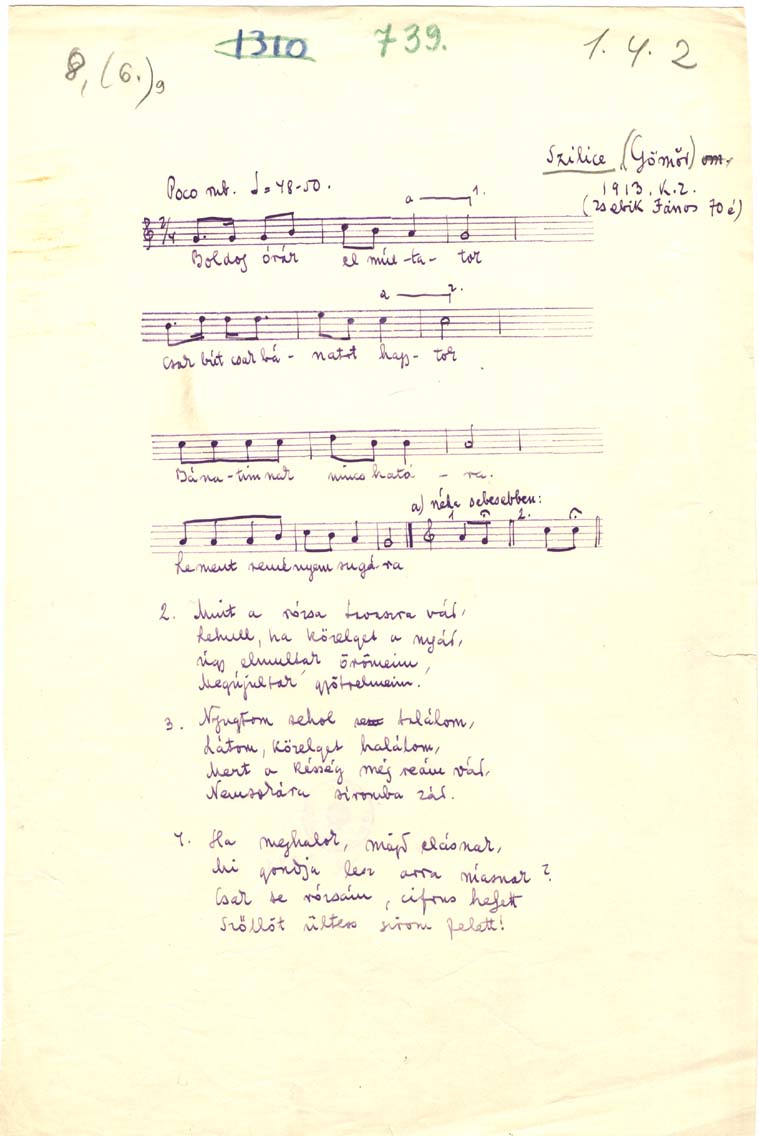 8, (6.)9
1310
739.
1. 4. 2
Szilice (Gömör)
1913. K.Z.
(Zsebik János 70 é)
Poco rub. ♩=48-50.
a 1.
2/4
Boldog órák el múl-ta-tok
a 2.
Csak bút csak bá-natot hagy-tok
Bána-timnak nincs hatá-ra.
a) néha sebesebben:
1 2.
Lement reményem sugára
2. Mint a rózsa tavaszra vál,
Lehull, ha közelget a nyál,
Úgy elmultak örömeim,
Megújultak gyötrelmeim.
3. Nyugtom sehol találom,
Látom, közelget halálom,
Mert a késség még reám vál,
Nemsokára siromba zál.
4. Ha meghalok, majd elásnak,
Mi gondja lesz arra másnak?
Csak te rózsám, cifrus helyett
Szöllőt ültess sirom felett!